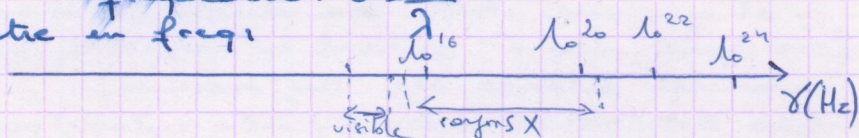 tre en freq:
λ
10^16 10^20 10^22 10^24
γ(Hz)
visible rayons X